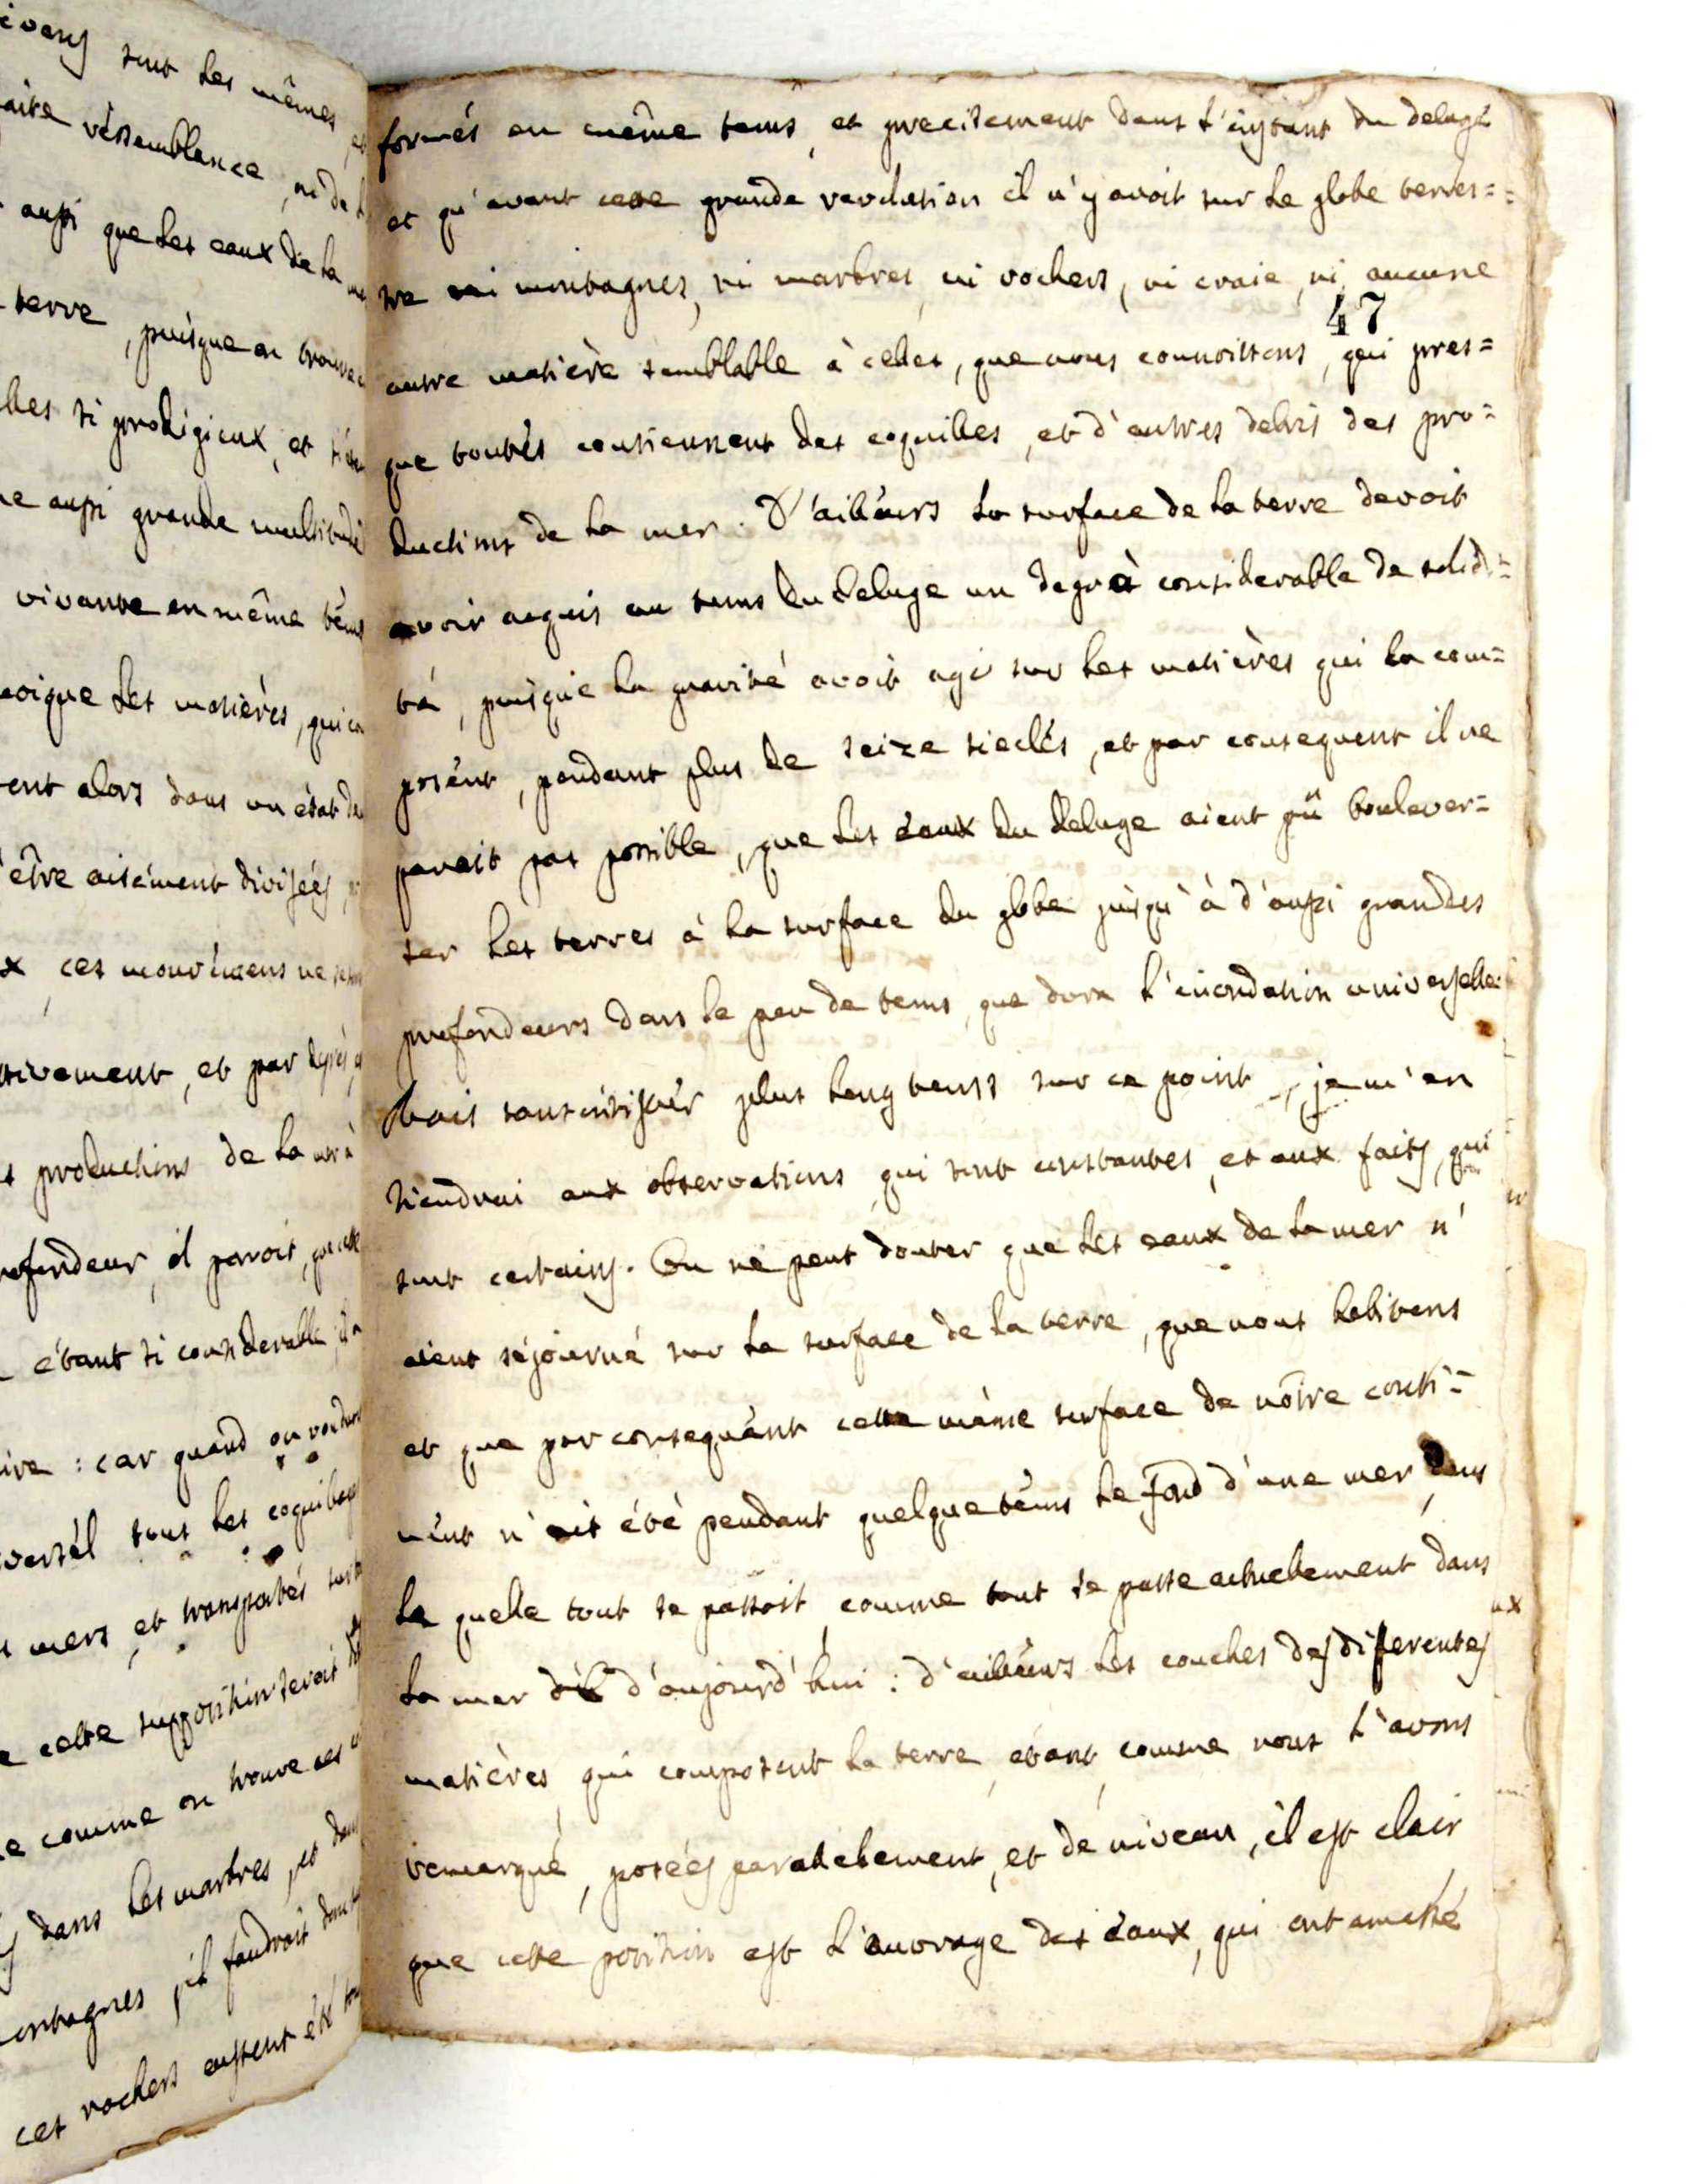 sont les mêmes
ressemblance
aussi que les eaux de la
terre, puisque on trouve
si prodigieux, et
aussi grande multitude
vivante en même tems
les matières, qui
alors dans un état de
être aisément divisées
ces mouvemens ne
et par degrés
productions de la
il paroit, que cette
étant si considerable
: car quand on voudroit
tous les coquillages
mers, et transportés sur
cette supposition seroit
comme on trouve ces
dans les marbres, et dans
il faudroit donc
ces rochers eussent été
formés en même tems, et precisement dans l'instant du deluge
et qu'avant cette grande revolution il n'y avoit sur le globe terres=
tre ni montagnes, ni marbres, ni rochers, ni craie, ni aucune
47
autre matière semblable à celles, que nous connoissons, qui pres=
que toutes contiennent des coquilles, et d'autres debris des pro=
ductions de la mer. D'ailleurs la surface de la terre devoit
avoir acquis au tems du deluge un degré considerable de solidi=
té, puisque la gravité avoit agi sur les matières qui la com=
posent, pendant plus de seize siecles, et par consequent il ne
paroit pas possible, que les eaux du deluge aient pû boulever=
ser les terres à la surface du globe jusqu'à d'aussi grandes
profondeurs dans le peu de tems, que dura l'inondation universelle:
Mais sans insister plus long tems sur ce point, je m'en
tiendrai aux observations, qui sont constantes, et aux faits, qui
sont certains. On ne peut douter que les eaux de la mer n'
aient séjourné sur la surface de la terre, que nous habitons
et que par consequent cette même surface de nôtre conti=
nent n'ait été pendant quelque tems le fond d'une mer, dans
la quelle tout se passoit, comme tout se passe actuellement dans
la mer d'aujourd'hui: d'ailleurs les couches des differentes
matières, qui composent la terre, étant, comme nous l'avons
remarqué, posées parallelement, et de niveau, il est clair
que cette position est l'ouvrage des eaux, qui ont amassé